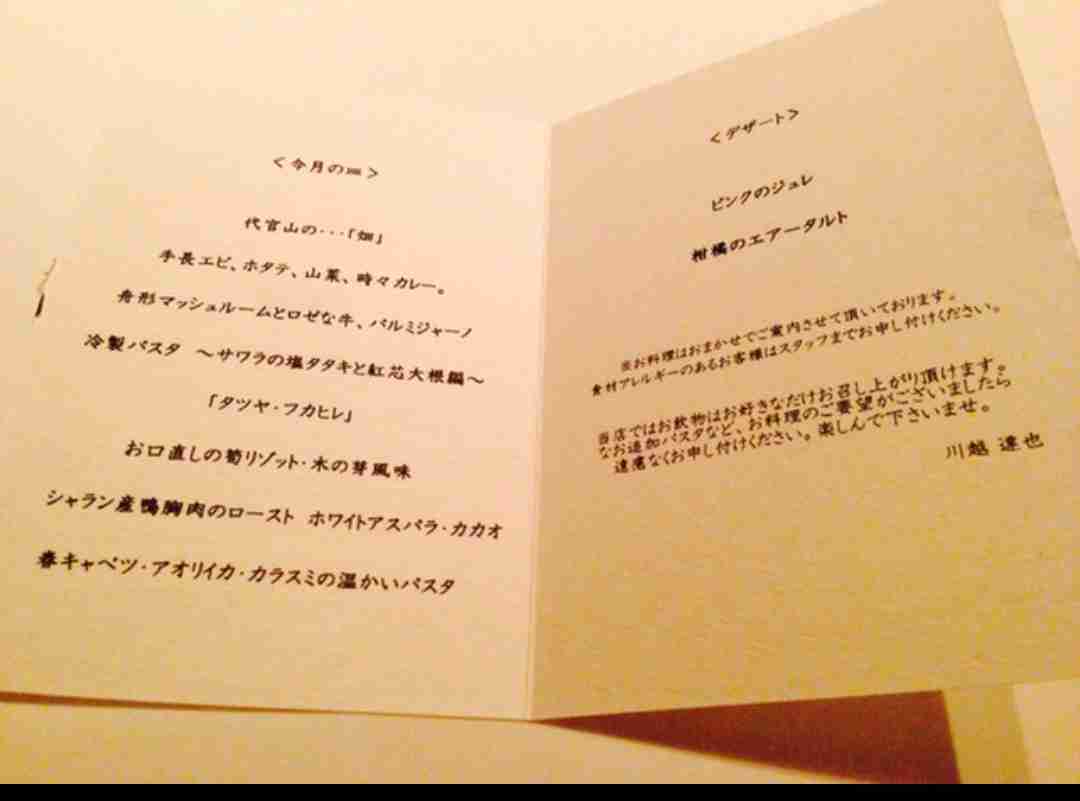 ＜今月の皿＞
代官山の・・・「畑」
手長エビ、ホタテ、山菜、時々カレー。
舟形マッシュルームとロゼな牛、パルミジャーノ
冷製パスタ　～サワラの塩タタキと紅芯大根編～
「タツヤ・フカヒレ」
お口直しの筍リゾット・木の芽風味
シャラン産鴨胸肉のロースト　ホワイトアスパラ・カカオ
春キャベツ・アオリイカ・カラスミの温かいパスタ
＜デザート＞
ピンクのジュレ
柑橘のエアータルト
※お料理はおまかせでご案内させて頂いております。
食材アレルギーのあるお客様はスタッフまでお申し付けください。
当店ではお飲物はお好きなだけお召し上がり頂けます。
なお追加パスタなど、お料理のご要望がございましたら
遠慮なくお申し付けください。楽しんで下さいませ。
川越 達也